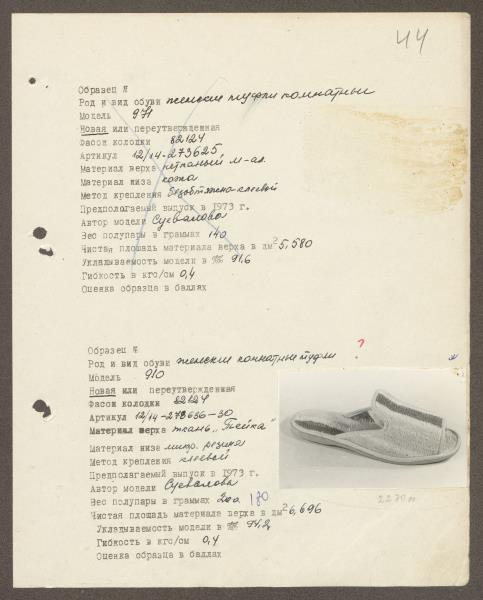 44
Образец #
Род и вид обуви женские туфли комнатные
Модель 971
Новая или переутвержденная
Фасон колодки 82124
Артикул 12/14-273625
Материал верха нетканый м-ал.
Материал низа кожа
Метод крепления безобтяжно-клеевой
Предполагаемый выпуск в 1973 г.
Автор модели Сувалова
Вес полупары в граммах 140
Чистая площадь материала верха в дм2 5,580
Укладываемость модели в % 91,6
Гибкость в кгс/см 0,4
Оценка образца в баллах
?
Образец #
Род и вид обуви женские комнатные туфли
Модель 910
Новая или переутвержденная
Фасон колодки 82124
Артикул 12/14-273656-30
Материал верха ткань
Материал низа микр. резина
Метод крепления клеевой
Предполагаемый выпуск в 1973 г.
Автор модели Сувалова
Вес полупары в граммах 200 180
Чистая площадь материала верха в дм2 6,696
Укладываемость модели в % 94,2
Гибкость в кгс/см 0,4
Оценка образца в баллах